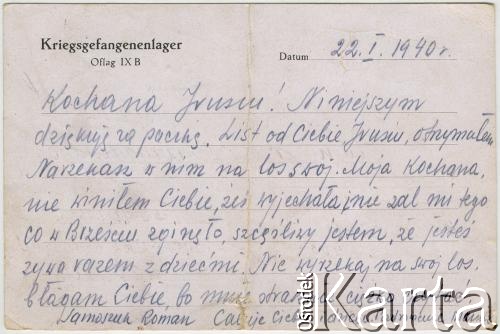 Kriegsgefangenenlager
Oflag IX B
Datum 22.I.1940r.
Kochana Irusiu! Niniejszym
dziękuję za paczkę. List od Ciebie Irusiu, otrzymałem
Narzekasz w nim na los swój. Moja Kochana,
nie winiłem Ciebie, żeś wyjechała, nie żal mi tego
co w Brześciu zginęło, szczęśliwy jestem, że jesteś
żywa razem z dziećmi. Nie wyrzekaj na swój los,
błagam Ciebie, bo mnie
Roman Całuję Ciebie
Ośrodek
Karta